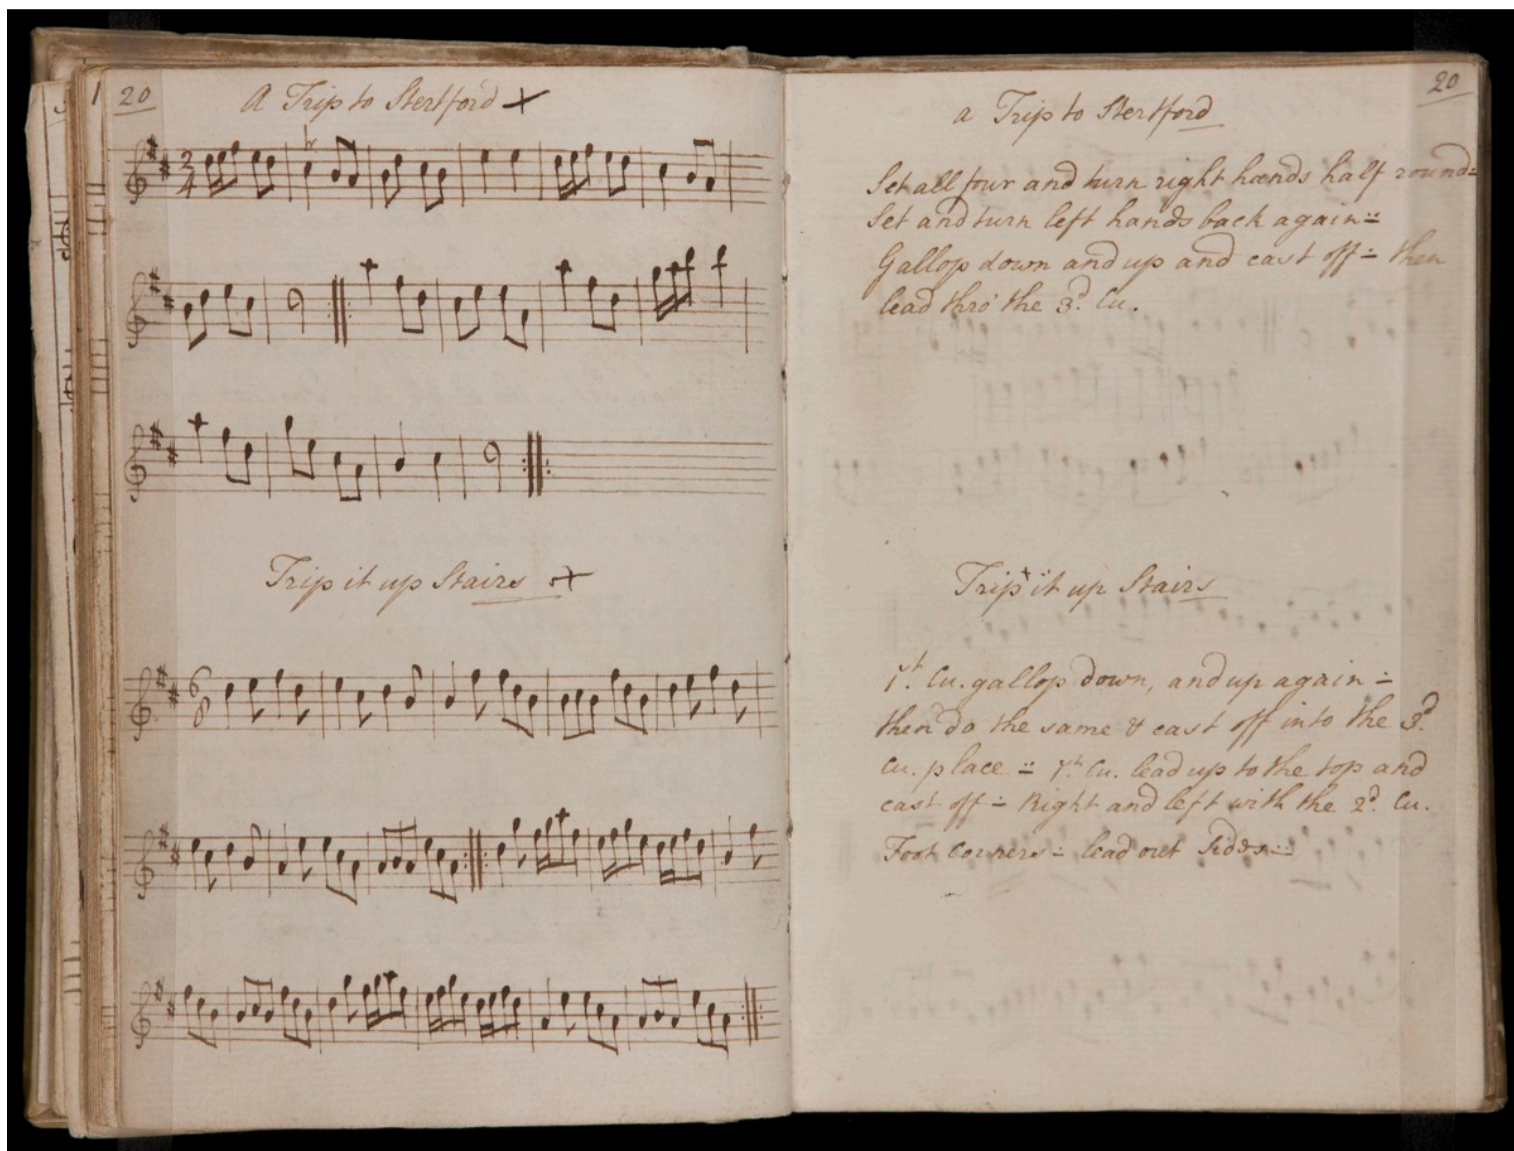 20
A Trip to Stertford
Trip it up Stairs
20
a Trip to Stertford
Set all four and turn right hands half round÷
Set and turn left hands back again ÷
Gallop down and up and cast off ÷ then
lead thro' the 3d. Cu.
Trip it up Stairs
1st. Cu. gallop down, and up again ÷
then do the same & cast off into the 3d.
Cu. place ÷ 1st. Cu. lead up to the top and
cast off ÷ Right and left with the 2d. Cu.
Foot corners ÷ lead out Sides ÷